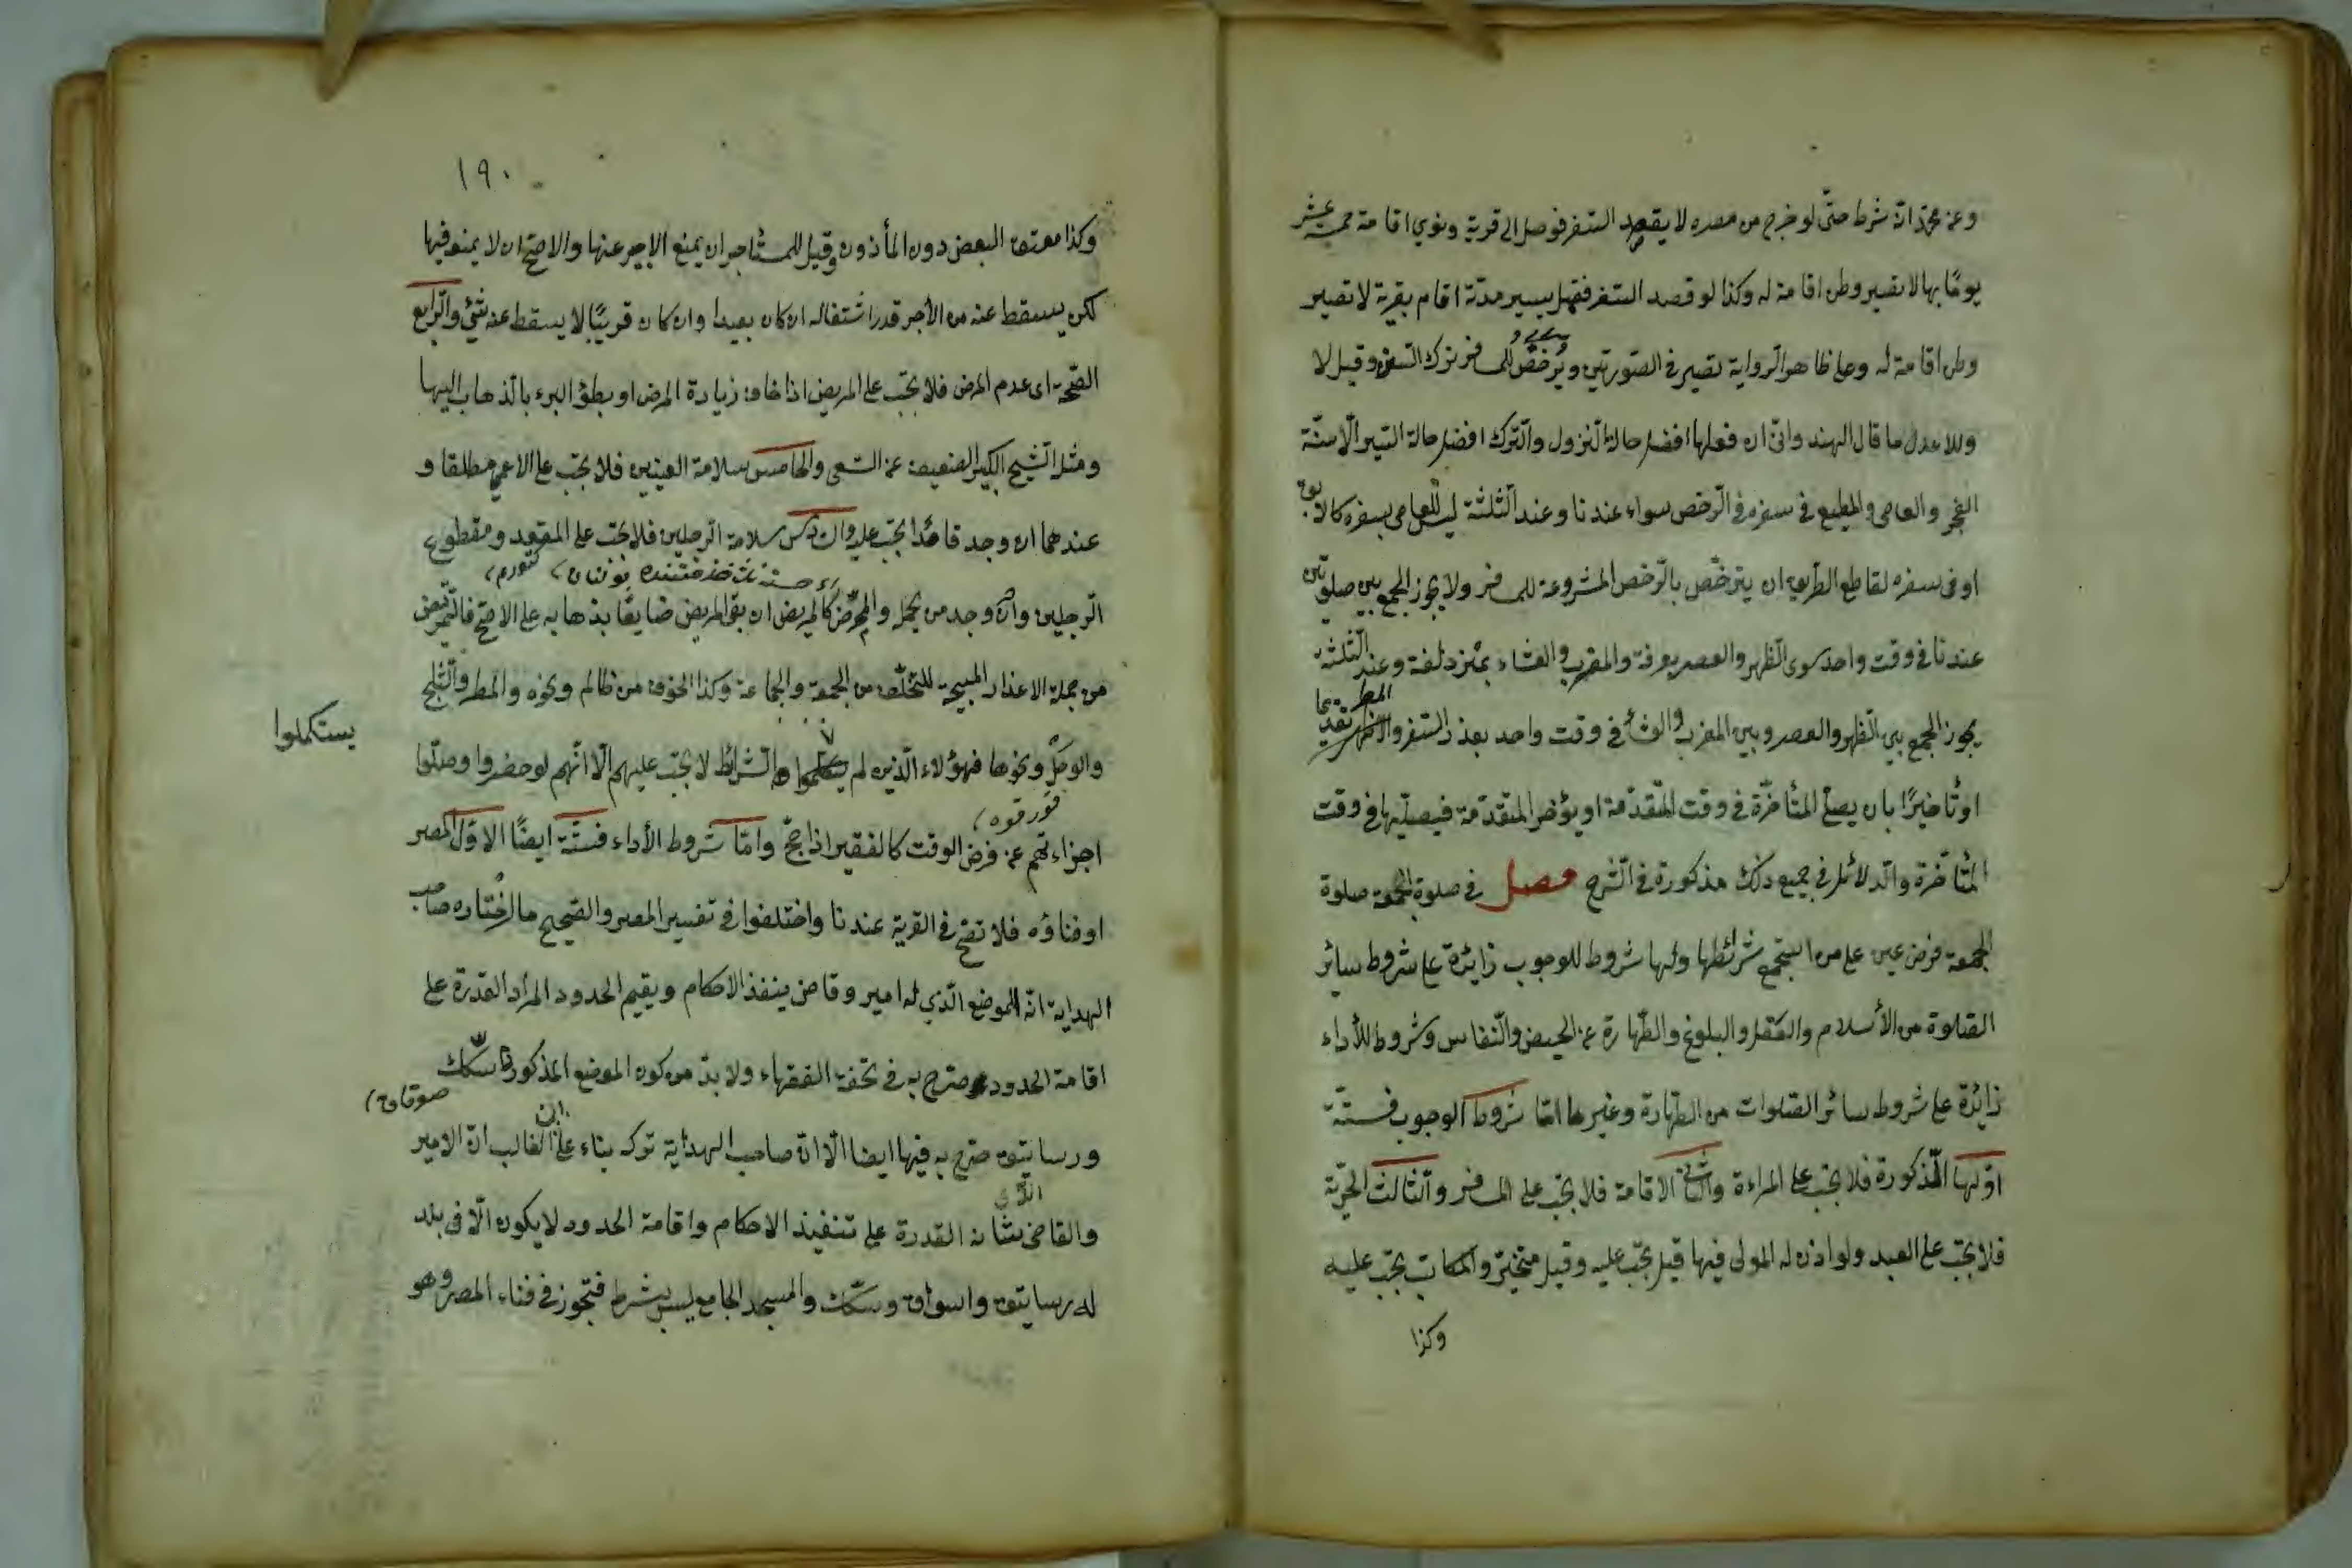 وعن محمد انه شرط حتى لو خرج من مصره لا يقصد السفر فوصل الى قرية ونوي اقامة خمسة عشر
يومًا بها لا تصير وطن اقامة له وكذا لو قصد السفر فقبل سير مدة اقام بقرية لا تصير
وطن اقامة له وعلى ظاهر الرواية تصير في الصورتين ويرخص للمسافر ترك السنن وقيل لا
والاعدل ما قال الهندواني ان فعلها افضل حالة النزول والترك افضل حالة السير الا سنة
الفجر والعاصي والمطيع في سفره في الرخص سواء عندنا وعند الثلثة ليس للعاصي بسفره كالابق
او في سفره لقاطع الطريق ان يترخص بالرخص المشروعة للمسافر ولا يجوز الجمع بين صلوتين
عندنا في وقت واحد سوى الظهر والعصر بعرفة والمغرب والعشاء بمزدلفة وعند الثلثة
المطر
يجوز الجمع بين الظهر والعصر وبين المغرب والعشاء في وقت واحد بعذر السفر و تقديما
او تأخيرًا بان يصلي المتأخرة في وقت المتقدمة او يؤخر المتقدمة فيصليها في وقت
المتأخرة والدلائل في جميع ذلك مذكورة في الشرح فصل في صلوة الجمعة صلوة
الجمعة فرض عين على من استجمع شرائطها ولها شروط للوجوب زائدة على شروط سائر
الصلوة من الأسلام والعقل والبلوغ والطهارة عن الحيض والنفاس وشروط للأداء
زائدة على شروط سائر الصلوات من الطهارة وغيرها اما شروط الوجوب فستة
اولها الذكورة فلا تجب على المراءة والثاني الاقامة فلا تجب على المسافر والثالث الحرية
فلا تجب على العبد ولو اذن له المولى فيها قيل تجب عليه وقيل متخير والمكاتب تجب عليه
وكذا
١٩٠
وكذا معتق البعض دون المأذون وقيل للمستأجر ان يمنع الاجير عنها والاصح ان لا يمنع فيها
لكن يسقط عنه من الأجر قدر اشتغاله ان كان بعيدا وان كان قريبًا لا يسقط عنه شئ والرابع
الصحة اى عدم المرض فلا تجب على المريض اذا خاف زيادة المرض او بطؤ البرء بالذهاب اليها
ومثل الشيخ الكبير الضعيف عن السعى والخامس سلامة العينين فلا تجب على الاعمى مطلقا و
عندهما ان وجد قائدا تجب عليه والسادس سلامة الرجلين فلا تجب على المقعد ومقطوع
الرجلين وان وجد من يحمله والممرض كالمريض ان بقى المريض ضايعًا بذهابه على الاصح فالتمريض
من جملة الاعذار المبيحة للتخلف من الجمعة والجماعة وكذا الخوف من ظالم ونحوه والمطر والثلج
يستكملوا
والوحل ونحوها فهؤلاء الذين لم هذه الشرائط لا تجب عليهم الا انهم لو حضروا وصلوا
اجزاءتهم عن فرض الوقت كالفقير اذا حج واما شروط الأداء فستة ايضًا الاول المصر
او فناؤه فلا تصح في القرية عندنا واختلفوا في تفسير المصر والصحيح ما اختاره صاحب
الهداية انه الموضع الذي له امير وقاض ينفذ الاحكام ويقيم الحدود المراد القدرة على
اقامة الحدود صرح به في تحفة الفقهاء ولا بد من كون الموضع المذكور ذا سكك
ورساتيق صرح به فيها ايضا الا ان صاحب الهداية تركه بناء على ان الغالب ان الامير
الذي
والقاضى شانه القدرة على تنفيذ الاحكام واقامة الحدود لا يكون الا في بلد
له رساتيق واسواق وسكك والمسجد الجامع ليس بشرط فتجوز في فناء المصر وهو